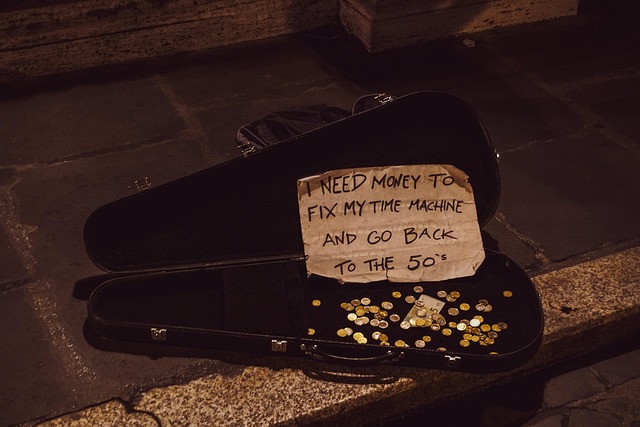 I NEED MONEY TO
FIX MY TIME MACHINE
AND GO BACK
TO THE 50's